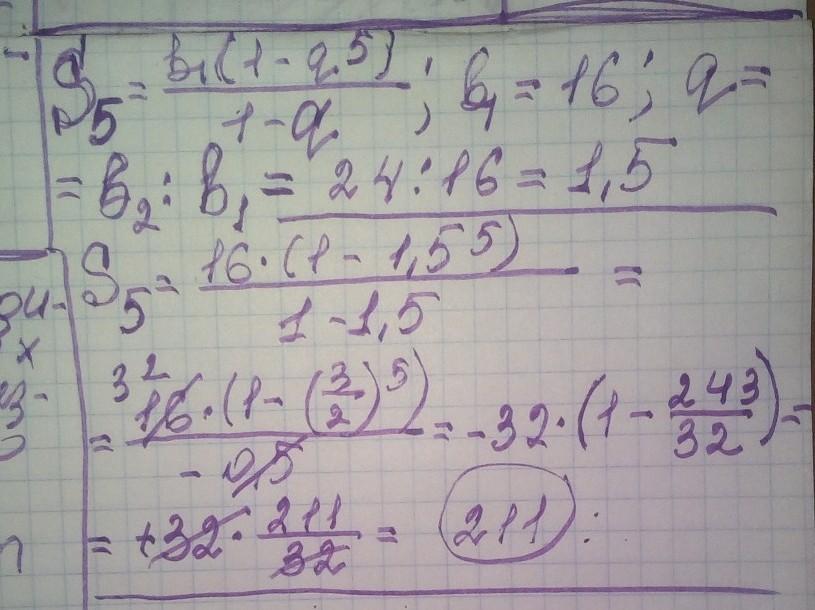 S₅ = b₁(1 - q⁵) / 1 - q ; b₁ = 16 ; q =
= b₂ : b₁ = 24 : 16 = 1,5
S₅ = 16 · (1 - 1,5⁵) / 1 - 1,5 =
= 32 16 · (1 - (3/2)⁵) / - 0,5 = - 32 · (1 - 243/32) =
= + 32 · 211/32 = 211 :